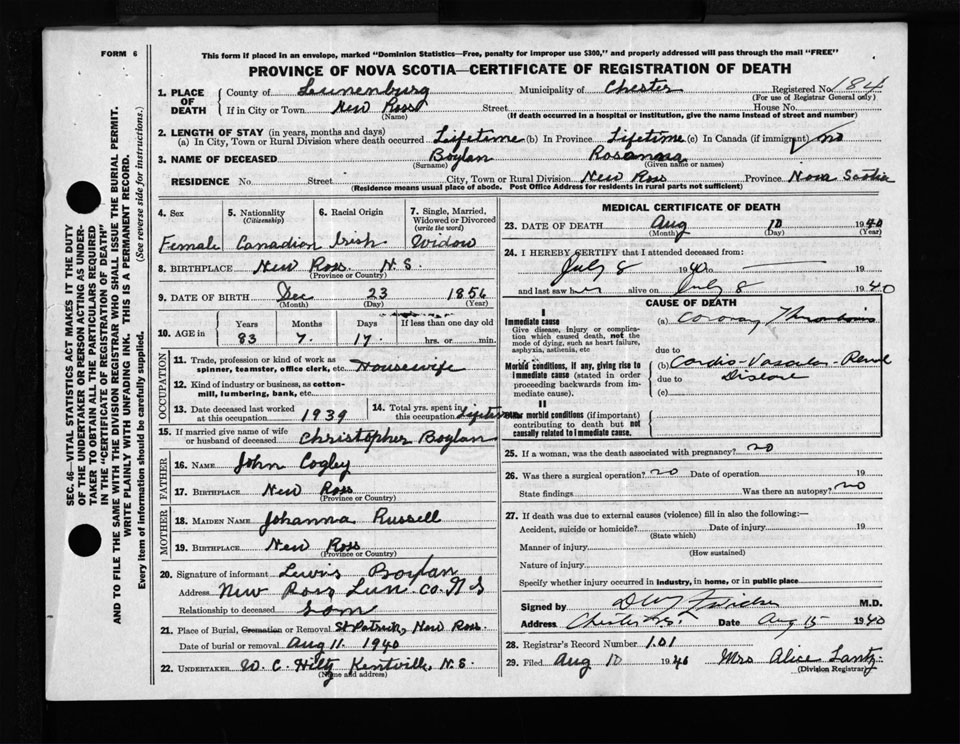 FORM 6
This form if placed in an envelope, marked "Dominion Statistics—Free, penalty for improper use $300," and properly addressed will pass through the mail "FREE"
PROVINCE OF NOVA SCOTIA—CERTIFICATE OF REGISTRATION OF DEATH
1. PLACE OF DEATH County of Lunenburg Municipality of Chester Registered No. 184
(For use of Registrar General only)
If in City or Town New Ross Street House No.
(Name) (If death occurred in a hospital or institution, give the name instead of street and number)
2. LENGTH OF STAY (in years, months and days)
(a) In City, Town or Rural Division where death occurred Lifetime (b) In Province Lifetime (c) In Canada (if immigrant) no
3. NAME OF DECEASED Boylan Rosanna
(Surname) (Given name or names)
RESIDENCE No. Street City, Town or Rural Division New Ross Province Nova Scotia
(Residence means usual place of abode. Post Office Address for residents in rural parts not sufficient)
SEC. 46—VITAL STATISTICS ACT MAKES IT THE DUTY
OF THE UNDERTAKER OR PERSON ACTING AS UNDER-
TAKER TO OBTAIN ALL THE PARTICULARS REQUIRED
IN THE "CERTIFICATE OF REGISTRATION OF DEATH"
AND TO FILE THE SAME WITH THE DIVISION REGISTRAR WHO SHALL ISSUE THE BURIAL PERMIT.
WRITE PLAINLY WITH UNFADING INK. THIS IS A PERMANENT RECORD.
Every item of information should be carefully supplied. (See reverse side for instructions.)
4. Sex
Female
5. Nationality
(Citizenship)
Canadian
6. Racial Origin
Irish
7. Single, Married,
Widowed or Divorced
(write the word)
Widow
8. BIRTHPLACE New Ross N.S.
(Province or Country)
9. DATE OF BIRTH Dec 23 1856
(Month) (Day) (Year)
10. AGE in Years Months Days If less than one day old
83 7 17 hrs. or min.
OCCUPATION
11. Trade, profession or kind of work as
spinner, teamster, office clerk, etc. Housewife
12. Kind of industry or business, as cotton-
mill, lumbering, bank, etc.
13. Date deceased last worked
at this occupation 1939
14. Total yrs. spent in
this occupation Lifetime
15. If married give name of wife
or husband of deceased Christopher Boylan
FATHER
16. NAME John Cogley
17. BIRTHPLACE New Ross
(Province or Country)
MOTHER
18. MAIDEN NAME Johanna Russell
19. BIRTHPLACE New Ross
(Province or Country)
20. Signature of informant Lewis Boylan
Address New Ross Lun. Co. N S
Relationship to deceased Son
21. Place of Burial, Cremation or Removal St Patrick, New Ross.
Date of burial or removal Aug 11. 1940
22. UNDERTAKER W. C. Hiltz Kentville, N.S.
(Name and address)
MEDICAL CERTIFICATE OF DEATH
23. DATE OF DEATH Aug 10 1940
(Month) (Day) (Year)
24. I HEREBY CERTIFY that I attended deceased from:
July 8 1940 to 19
and last saw her alive on July 8 1940
CAUSE OF DEATH
I
Immediate cause
Give disease, injury or complica-
tion which caused death, not the
mode of dying, such as heart failure,
asphyxia, asthenia, etc
(a) Coronary Thrombosis
due to
Morbid conditions, if any, giving rise to
immediate cause (stated in order
proceeding backwards from im-
mediate cause).
(b) Cardio-Vascular-Renal
due to Disease
(c)
II
Other morbid conditions (if important)
contributing to death but not
causally related to immediate cause.
25. If a woman, was the death associated with pregnancy? no
26. Was there a surgical operation? no Date of operation 19
State findings Was there an autopsy? no
27. If death was due to external causes (violence) fill in also the following:—
Accident, suicide or homicide? Date of injury 19
(State which)
Manner of injury
(How sustained)
Nature of injury
Specify whether injury occurred in industry, in home, or in public place
Signed by M.D.
Address Chester N.S. Date Aug 15 1940
28. Registrar's Record Number 101
29. Filed Aug 10 1940 Mrs Alice Lantz.
(Division Registrar)